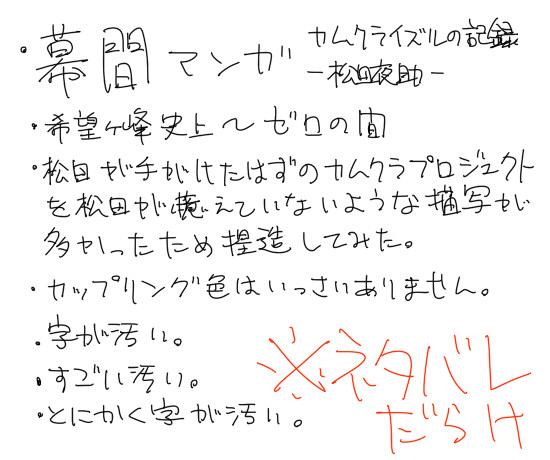 ・幕間マンガ カムクライズルの記録
－松田夜助－
・希望ヶ峰史上～ゼロの間
・松田が手がけたはずのカムクラプロジェクト
を松田が憶えていないような描写が
多かったため捏造してみた。
・カップリング色はいっさいありません。
・字が汚い。
・すごい汚い。
・とにかく字が汚い。
※ネタバレ
だらけ